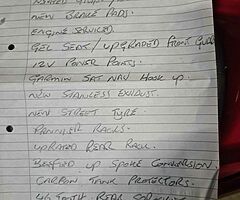 HEATED GRIPS /
NEW BRAKE PADS.
ENGINE SERVICED.
GEL SEATS / UPGRADED FRONT
12V POWER POINTS.
GARMIN SAT NAV HOOK UP.
NEW STAINLESS EXHAUST.
NEW STREET TYRE
PANNIER RACKS.
UPRATED REAR RACK.
UP SPOKE CONVERSION
CARBON TANK PROTECTORS.
46 TOOTH REAR